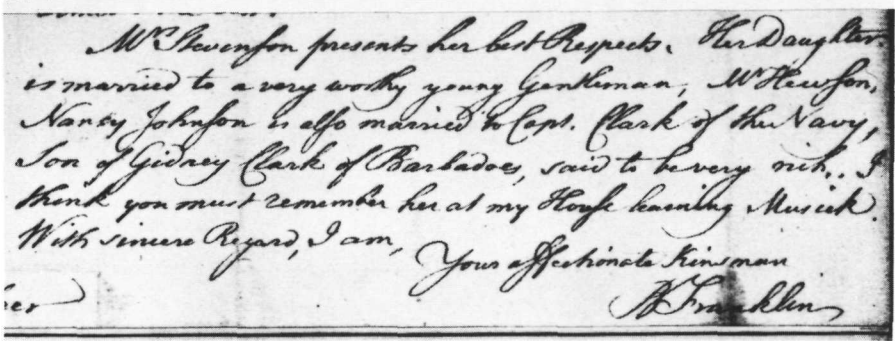 Mrs Stevenson presents her best Respects. Her Daughter
is married to a very worthy young Gentleman, Mr Hewson,
Nancy Johnson is also married to Capt. Clark of the Navy,
Son of Gidney Clark of Barbadoes, said to be very rich. I
think you must remember her at my House learning Musick.
With sincere Regard, I am,
Your affectionate Kinsman
B Franklin